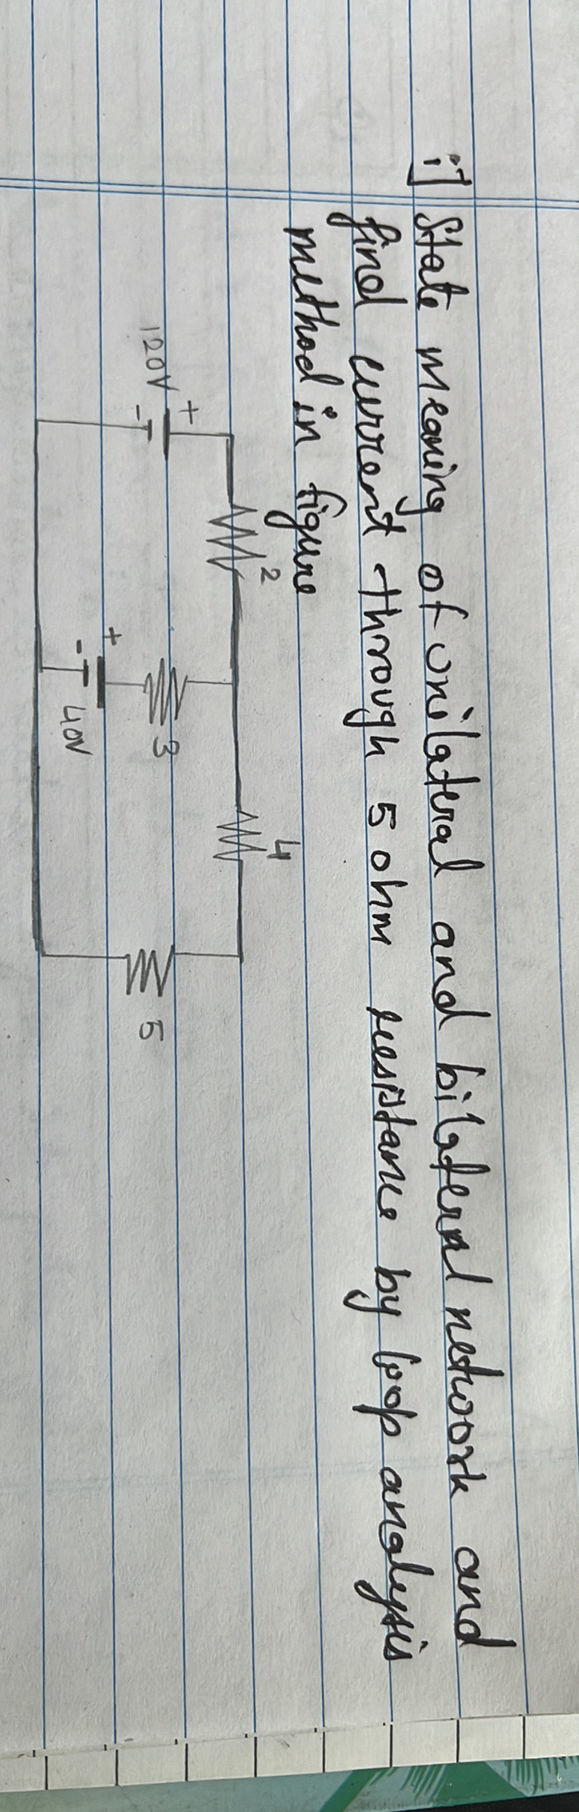 i] State meaning of Unilateral and bilateral network and
find current through 5 ohm resistance by loop analysis
method in figure
2
4
120V
+
-
3
5
+
-
40V